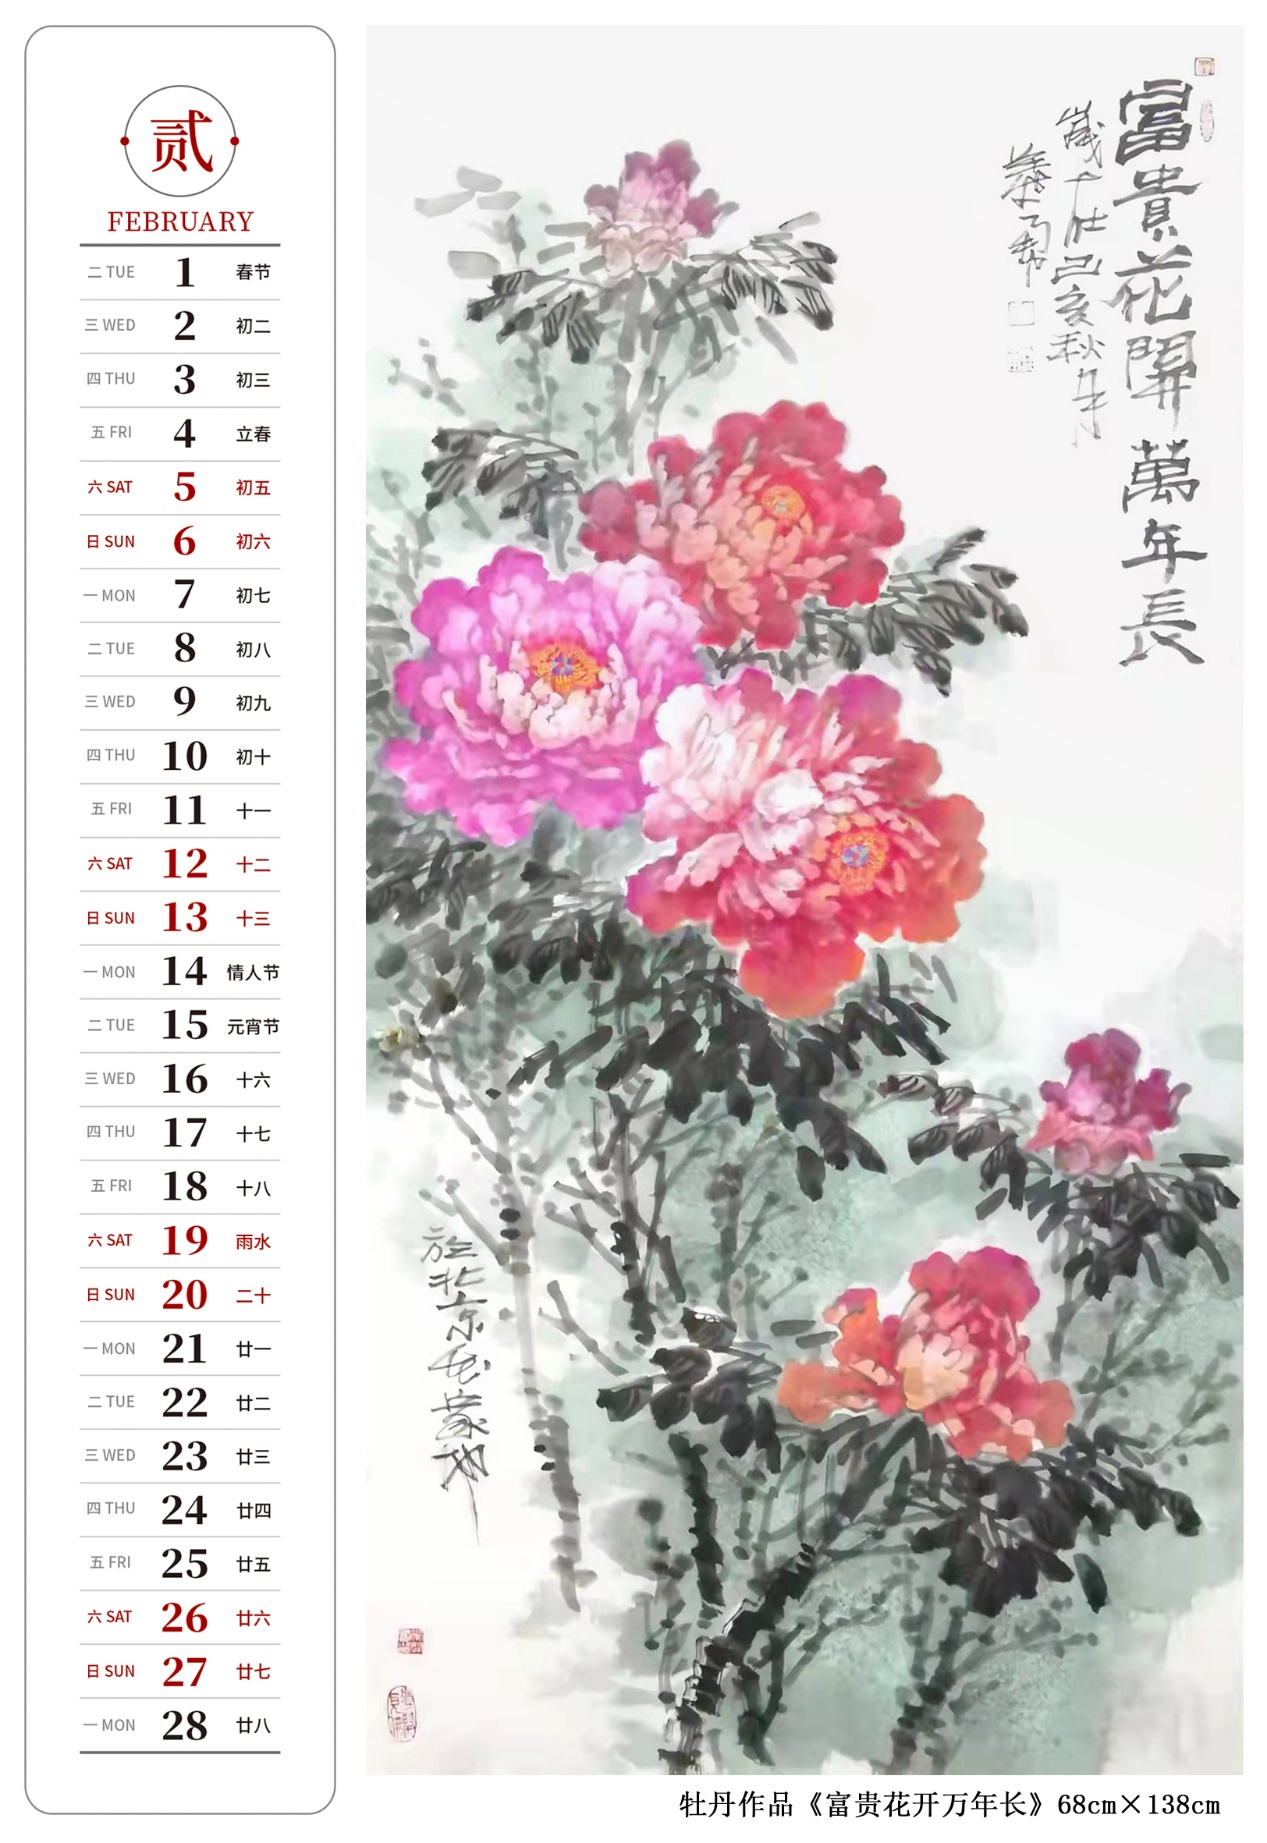 贰
FEBRUARY
二 TUE 1 春节
三 WED 2 初二
四 THU 3 初三
五 FRI 4 立春
六 SAT 5 初五
日 SUN 6 初六
一 MON 7 初七
二 TUE 8 初八
三 WED 9 初九
四 THU 10 初十
五 FRI 11 十一
六 SAT 12 十二
日 SUN 13 十三
一 MON 14 情人节
二 TUE 15 元宵节
三 WED 16 十六
四 THU 17 十七
五 FRI 18 十八
六 SAT 19 雨水
日 SUN 20 二十
一 MON 21 廿一
二 TUE 22 廿二
三 WED 23 廿三
四 THU 24 廿四
五 FRI 25 廿五
六 SAT 26 廿六
日 SUN 27 廿七
一 MON 28 廿八
富貴花開萬年長
歲己亥秋年
於北京
牡丹作品《富贵花开万年长》68cm×138cm